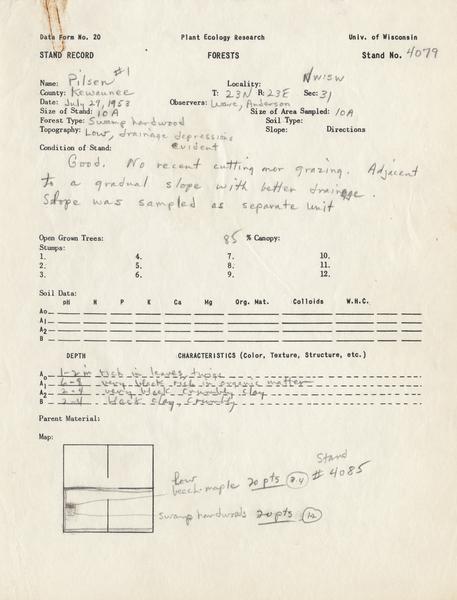 Data Form No. 20 Plant Ecology Research Univ. of Wisconsin
STAND RECORD FORESTS Stand No. 4079
Name: Pilsen #1 Locality: NW:SW
County: Kewaunee T: 23N R: 23E Sec: 31
Date: July 27, 1953 Observers: Ware, Anderson
Size of Stand: 10A Size of Area Sampled: 10A
Forest Type: Swamp hardwood Soil Type:
Topography: Low, drainage depressions evident Slope: Directions
Condition of Stand:
Good. No recent cutting nor grazing. Adjacent
to a gradual slope with better drainage.
Slope was sampled as separate unit
Open Grown Trees: 85 % Canopy:
Stumps:
1. 4. 7. 10.
2. 5. 8. 11.
3. 6. 9. 12.
Soil Data:
pH N P K Ca Mg Org. Mat. Colloids W.H.C.
A0
A1
A2
B
DEPTH CHARACTERISTICS (Color, Texture, Structure, etc.)
A0 1-2 in rich in leaves, twigs
A1 6-8 very black rich in organic matter
A2 2-4 very black crumbly clay
B 2-4 black clay, crumbly
Parent Material:
Map:
Low beech-maple 20 pts Stand # 4085
swamp hardwoods 20 pts 12